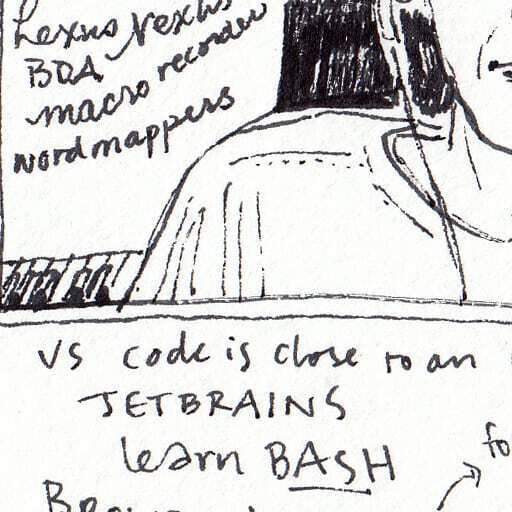 Lexus Nexus
BOA
macro recorder
wordmappers
VS Code is close to an
JETBRAINS
learn BASH
fo